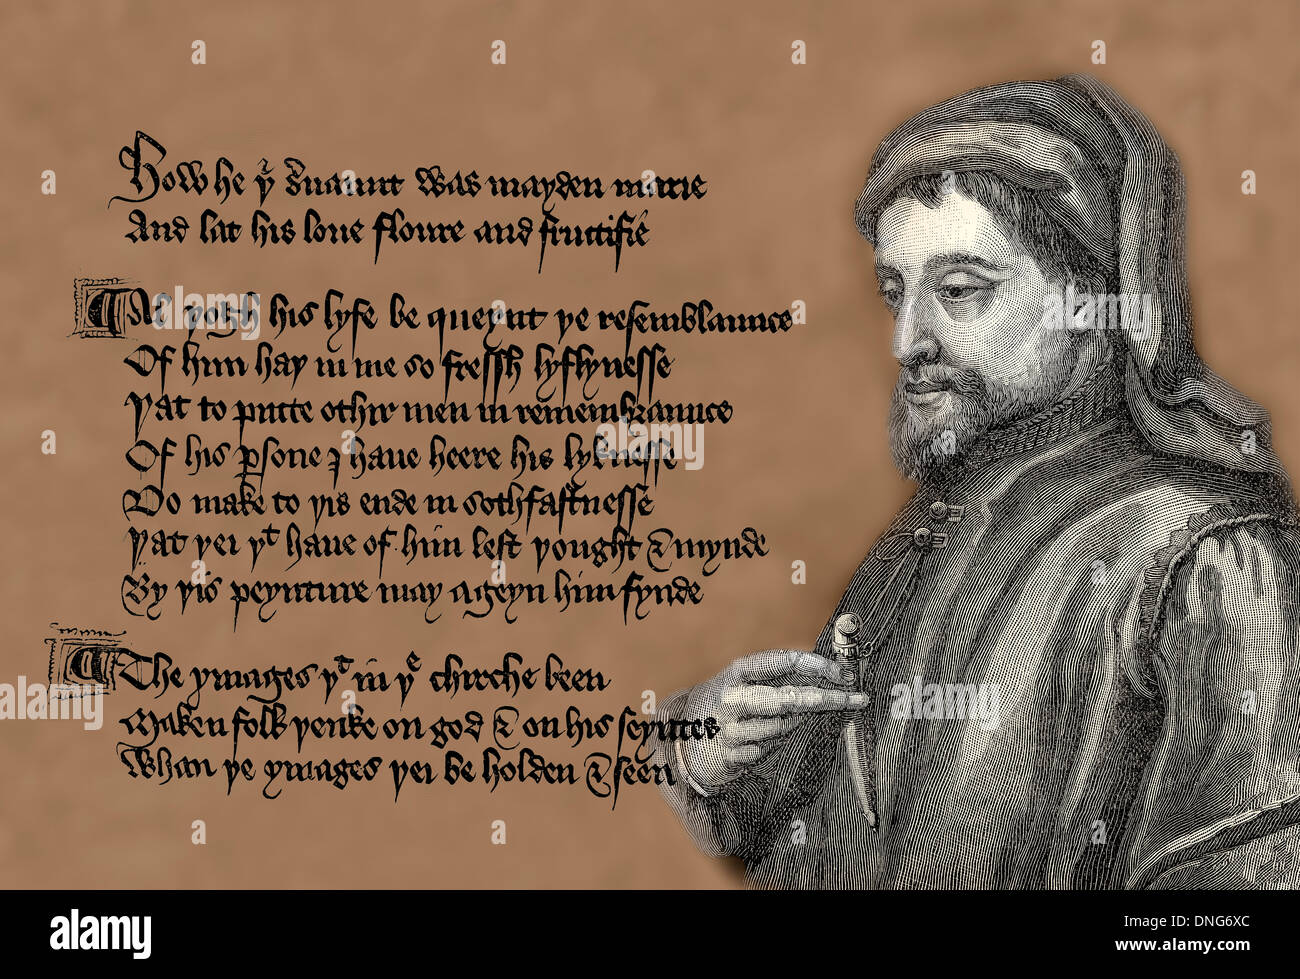 How he yͬ ẜuaunt was mayden marie
And lat his loue floure and fructifie
Al yogh his lyfe be queynt ye resemblaunce
Of him hay in me so fressh lyflynesse
Yat to putte othir men in remembraunce
Of his ꝑsone I haue heere his lyknesse
Do make to yis ende in sothfastnesse
Yat yei yͭ haue of him left yought & mynde
By yis peynture may ageyn him fynde
The ymages yͭ in yͤ chirche been
Maken folk yenke on god & on his seyntes
Whan ye ymages yei be holden & seen
a
alamy
alamy
Image ID: DNG6XC
www.alamy.com